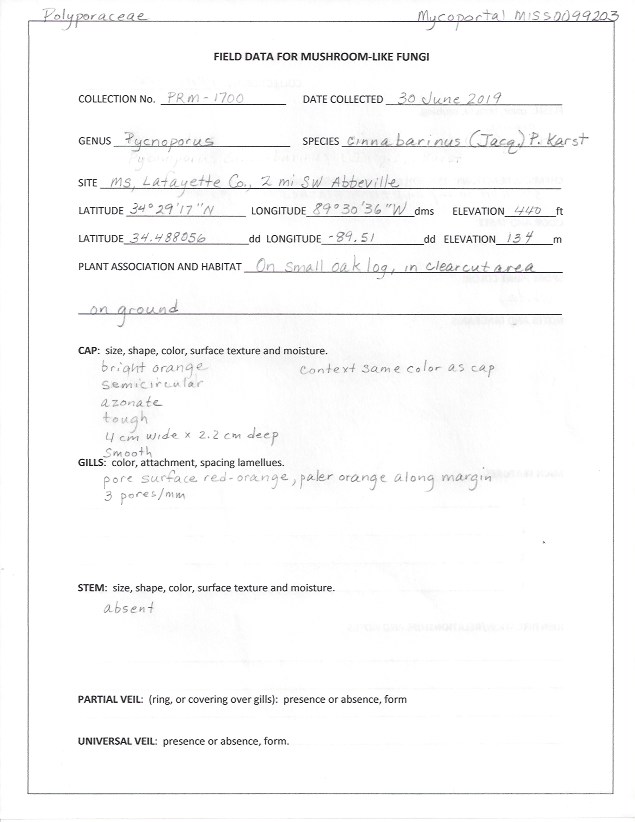 Polyporaceae Mycoportal MISS0099203
FIELD DATA FOR MUSHROOM-LIKE FUNGI
COLLECTION No. PRM-1700 DATE COLLECTED 30 June 2019
GENUS Pycnoporus SPECIES cinnabarinus (Jacq.) P. Karst
SITE MS, Lafayette Co., 2 mi SW Abbeville
LATITUDE 34°29'17"N LONGITUDE 89°30'36"W dms ELEVATION 440 ft
LATITUDE 34.488056 dd LONGITUDE -89.51 dd ELEVATION 134 m
PLANT ASSOCIATION AND HABITAT On small oak log, in clearcut area
on ground
CAP: size, shape, color, surface texture and moisture.
bright orange context same color as cap
semicircular
azonate
tough
4 cm wide x 2.2 cm deep
smooth
GILLS: color, attachment, spacing lamellues.
pore surface red-orange, paler orange along margin
3 pores/mm
STEM: size, shape, color, surface texture and moisture.
absent
PARTIAL VEIL: (ring, or covering over gills): presence or absence, form
UNIVERSAL VEIL: presence or absence, form.